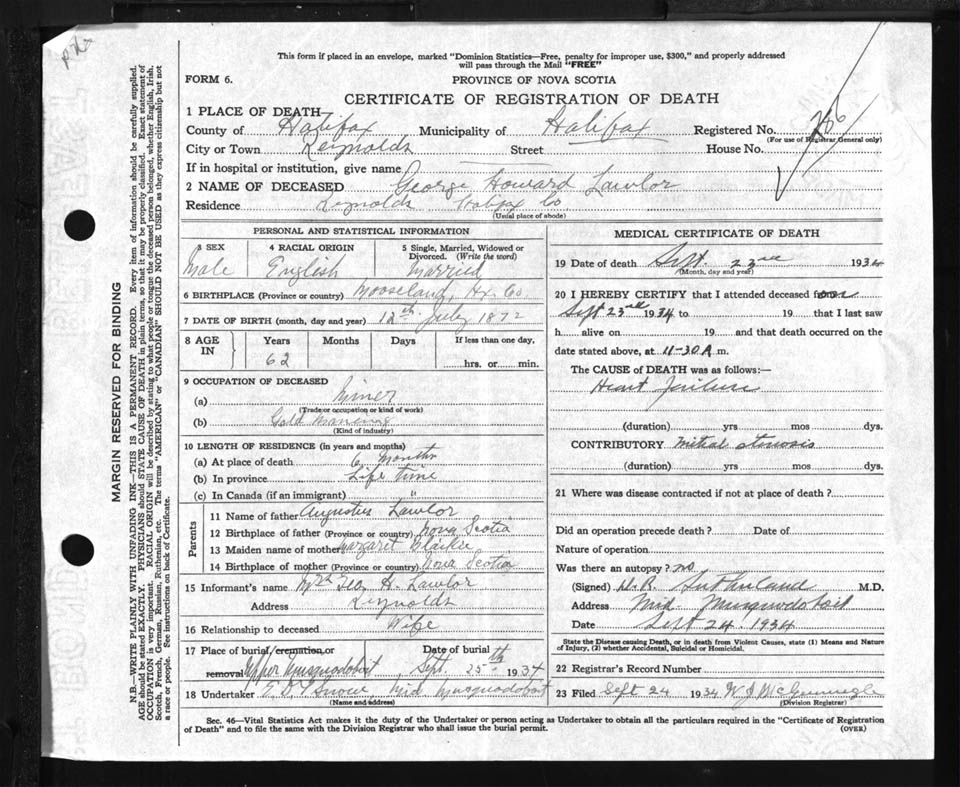 This form if placed in an envelope, marked "Dominion Statistics—Free, penalty for improper use, $300," and properly addressed
will pass through the Mail "FREE"
FORM 6.
PROVINCE OF NOVA SCOTIA
CERTIFICATE OF REGISTRATION OF DEATH
1 PLACE OF DEATH
County of Halifax Municipality of Halifax Registered No.
(For use of Registrar General only)
City or Town Reynolds Street House No.
If in hospital or institution, give name
2 NAME OF DECEASED George Howard Lawlor
Residence Reynolds Halifax Co
(Usual place of abode)
PERSONAL AND STATISTICAL INFORMATION
3 SEX 4 RACIAL ORIGIN 5 Single, Married, Widowed or Divorced. (Write the word)
Male English Married
6 BIRTHPLACE (Province or country) Mooseland, Hx. Co.
7 DATE OF BIRTH (month, day and year) 12th July 1872
8 AGE IN Years Months Days If less than one day,
62 hrs. or min.
9 OCCUPATION OF DECEASED
(a) Miner
(Trade or occupation or kind of work)
(b) Gold
(Kind of industry)
10 LENGTH OF RESIDENCE (in years and months)
(a) At place of death 6 Months
(b) In province Life time
(c) In Canada (if an immigrant) "
Parents
11 Name of father Augustus Lawlor
12 Birthplace of father (Province or country) Nova Scotia
13 Maiden name of mother Margaret
14 Birthplace of mother (Province or country) Nova Scotia
15 Informant's name Mrs Geo H. Lawlor
Address Reynolds
16 Relationship to deceased Wife
17 Place of burial/cremation, or removal Upper Musquodoboit Date of burial Sept. 25th 1934
18 Undertaker Mid Musquodoboit
(Name and address)
MEDICAL CERTIFICATE OF DEATH
19 Date of death Sept. 23rd 1934
(Month, day and year)
20 I HEREBY CERTIFY that I attended deceased
Sept 23rd 1934 to 19 that I last saw
h alive on 19 and that death occurred on
date stated above, at 11-30 A m.
The CAUSE of DEATH was as follows:—
Heart Failure
(duration) yrs mos dys.
CONTRIBUTORY Mitral stenosis
(duration) yrs mos dys.
21 Where was disease contracted if not at place of death?
Did an operation precede death? Date of
Nature of operation
Was there an autopsy? no
(Signed) Sutherland M.D.
Address Mid. Musquodoboit
Date Sept 24 1934
State the Disease causing Death, or in death from Violent Causes, state (1) Means and Nature
of Injury, (2) whether Accidental, Suicidal or Homicidal.
22 Registrar's Record Number
23 Filed Sept 24 1934
(Division Registrar)
Sec. 46—Vital Statistics Act makes it the duty of the Undertaker or person acting as Undertaker to obtain all the particulars required in the "Certificate of Registration
of Death" and to file the same with the Division Registrar who shall issue the burial permit. (OVER)
MARGIN RESERVED FOR BINDING
N.B.—WRITE PLAINLY WITH UNFADING INK—THIS IS A PERMANENT RECORD. Every item of information should be carefully supplied.
AGE should be stated EXACTLY. PHYSICIANS should STATE CAUSE OF DEATH in plain terms, so that it may be properly classified. Exact statement of
OCCUPATION is very important. RACIAL ORIGIN will be described by stating to what people or tongue the deceased person belonged, whether English, Irish,
Scotch, French, German, Russian, Ruthenian, etc. The terms "AMERICAN" or "CANADIAN" SHOULD NOT BE USED as they express citizenship but not
a race or people. See instructions on back of Certificate.